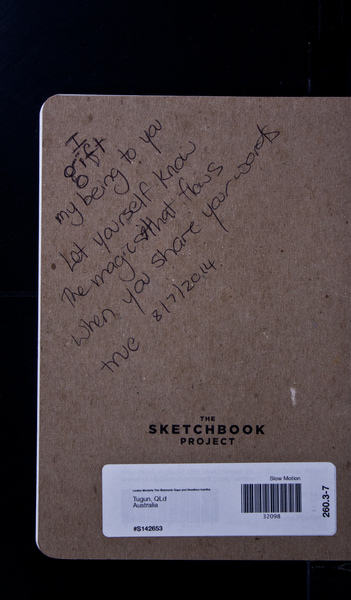 I
gift
my being to you
Let yourself know
The magic that flows
when you share your words
true 8/7/2014
THE
SKETCHBOOK
PROJECT
Slow Motion
Tugun, QLd
Australia
32098
#S142653
260.3-7